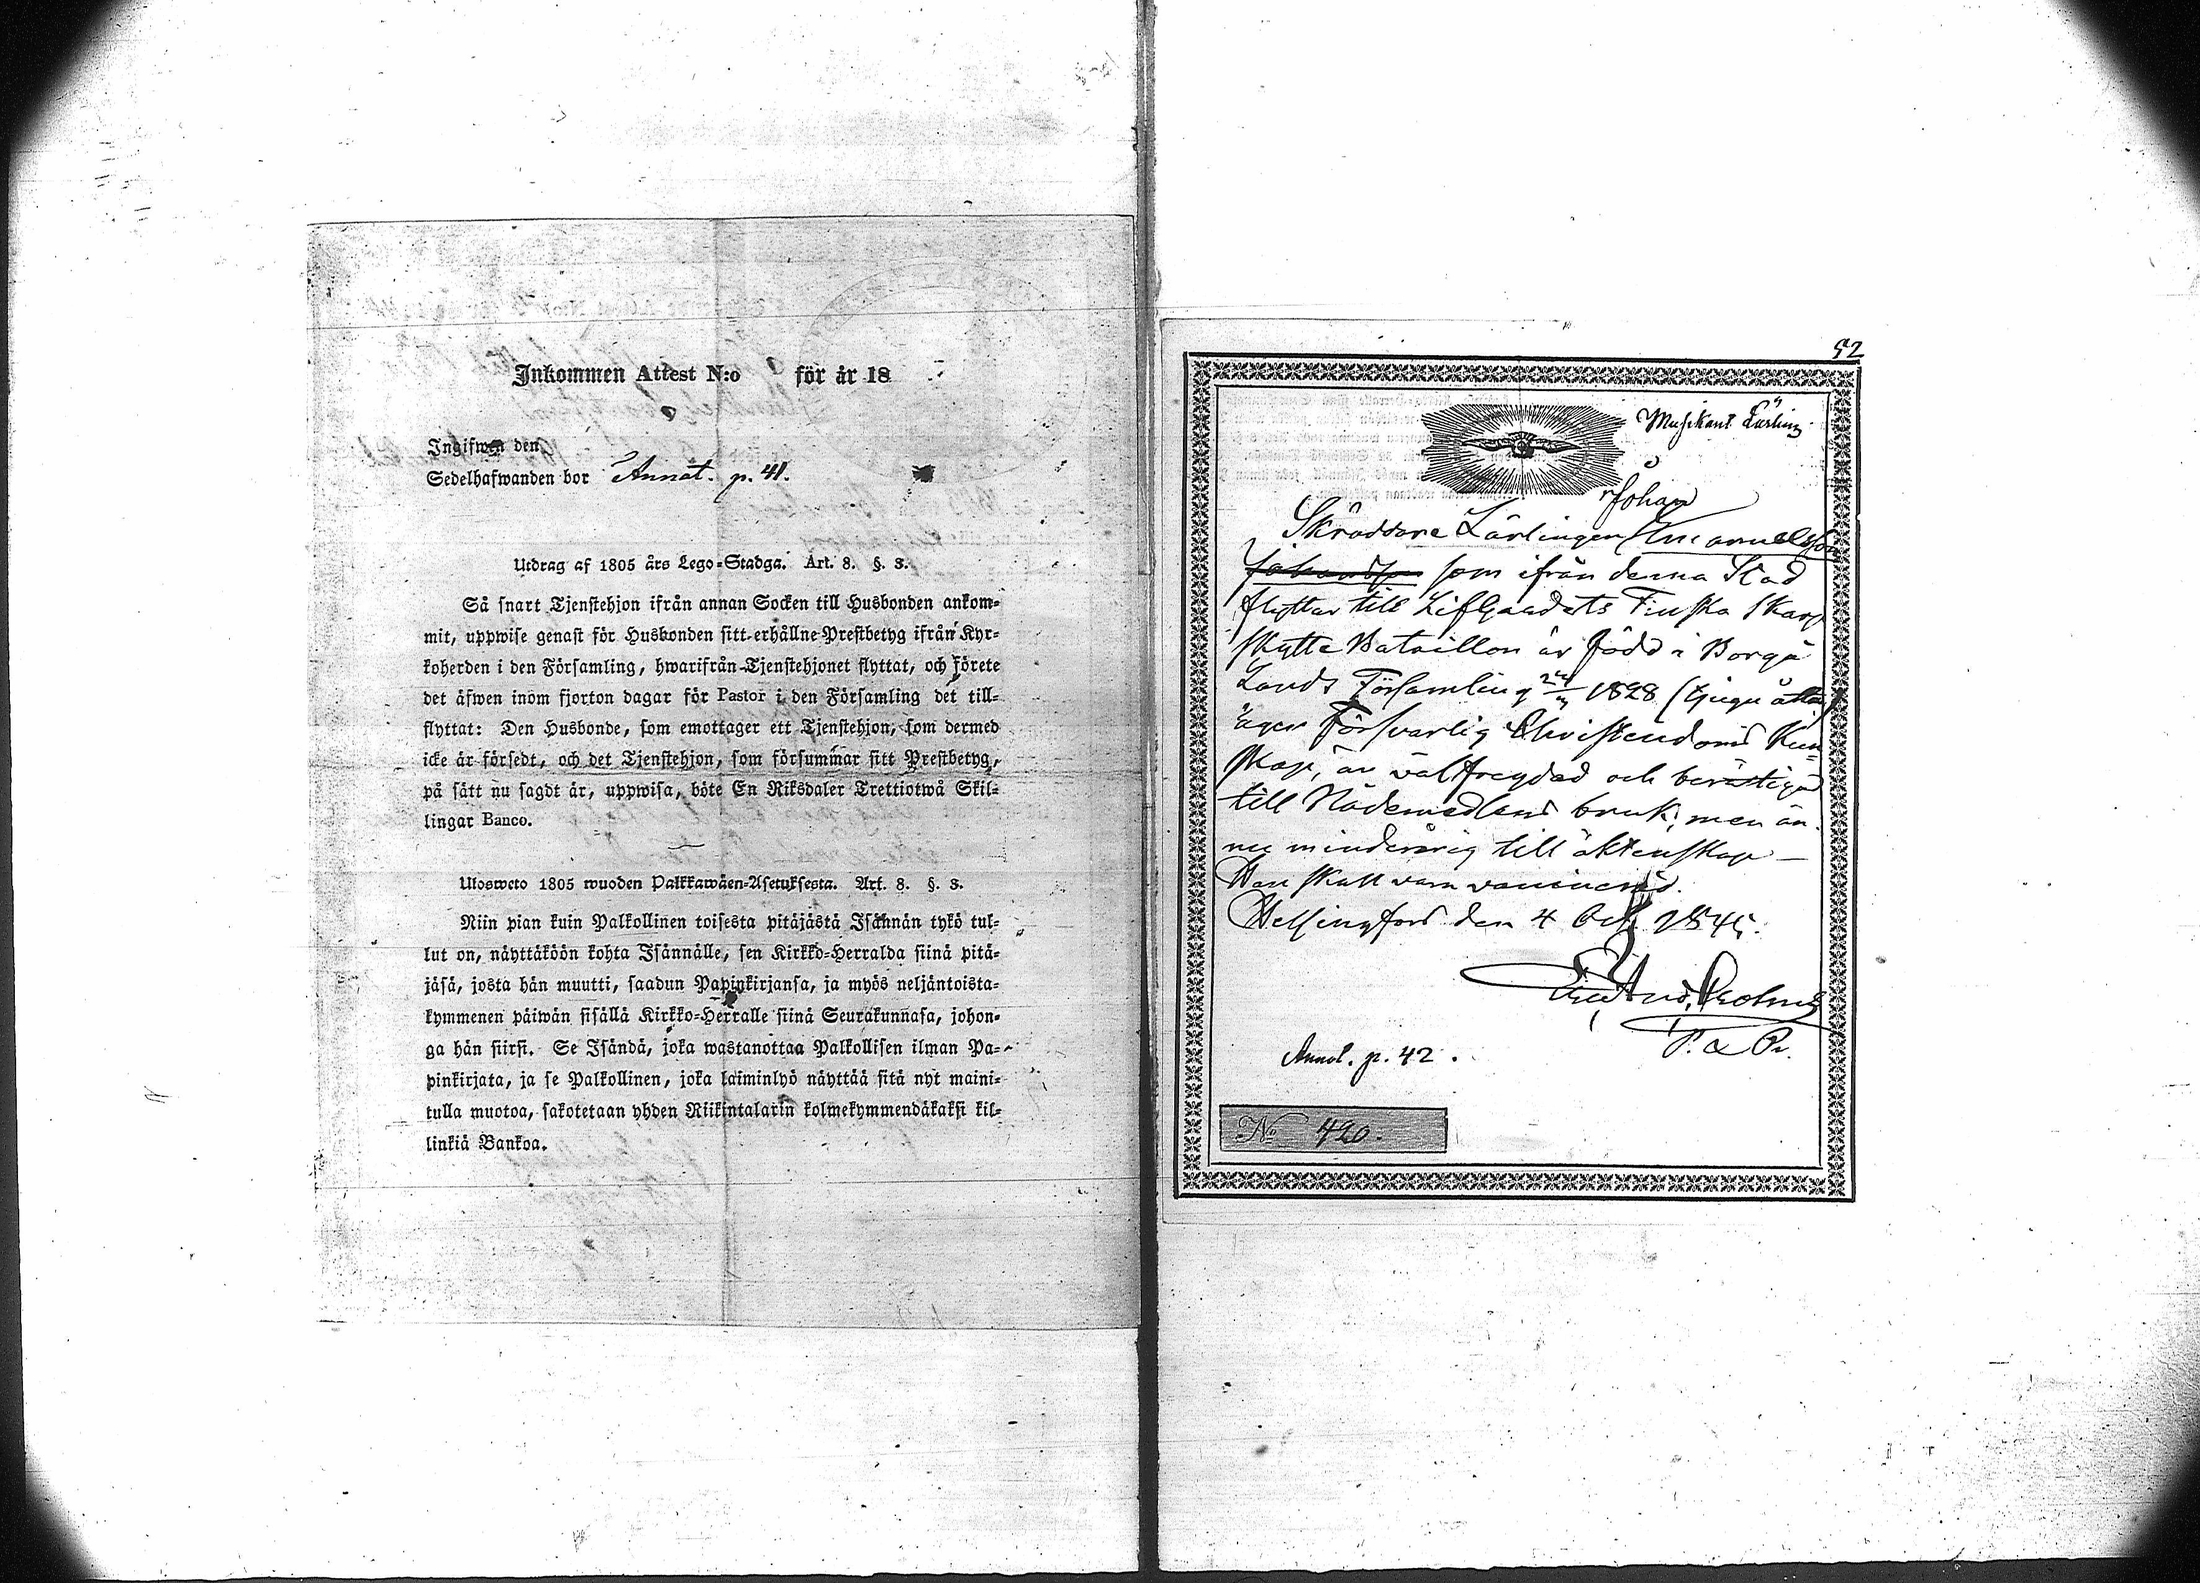 Inkommen Attest N:o för år 18
Ingifwen den
Sedelhafwanden bor Annot. p. 41.
Utdrag af 1805 års Lego-Stadga. Art. 8. §. 8.
Så snart Tjenstehjon ifrån annan Socken till Husbonden ankom-
mit, uppwise genast för Husbonden sitt erhållne Prestbetyg ifrån Kyr-
koherden i den Församling, hwarifrån Tjenstehjonet flyttat, och förete
det äfwen inom fjorton dagar för Pastor i den Församling det till-
flyttat: Den Husbonde, som emottager ett Tjenstehjon, som dermed
icke är försedt, och det Tjenstehjon, som försummar sitt Prestbetyg,
på sätt nu sagdt är, uppwisa, böte En Riksdaler Trettiotwå Skil-
lingar Banco.
Ulosweto 1805 wuoden Palkkawäen-Asetuksesta. Art. 8. §. 8.
Niin pian kuin Palkollinen toisesta pitäjästä Isännän tykö tul-
lut on, näyttäköön kohta Isännälle, sen Kirkko-Herralda siinä pitä-
jäsä, josta hän muutti, saadun Papinkirjansa, ja myös neljäntoista-
kymmenen päiwän sisällä Kirkko-Herralle siinä Seurakunnasa, johon-
ga hän siirsi. Se Isändä, joka wastanottaa Palkollisen ilman Pa-
pinkirjata, ja se Palkollinen, joka laiminlyö näyttää sitä nyt maini-
tulla muotoa, sakotetaan yhden Riikintalarin kolmekymmendäkaksi kil-
linkiä Bankoa.
52
Musikant Lärling
Johan
Skräddare Lärlingen Emanuelsson
som ifrån denna Stad
flyttar till Lifgardets Finska Skarp
skytte Bataillon är född i Borgå
Lands Församling 1828 (tjugu åtta)
äger Försvarlig Christendoms Kun=
skap, är välfregdad och berättigad
till Nådemedlens bruk, men än
nu minderårig till äktenskap —
Han skall vara vaccinerad.
Helsingfors den 4 Oct. 1845.
Annot. p. 42.
No 420.